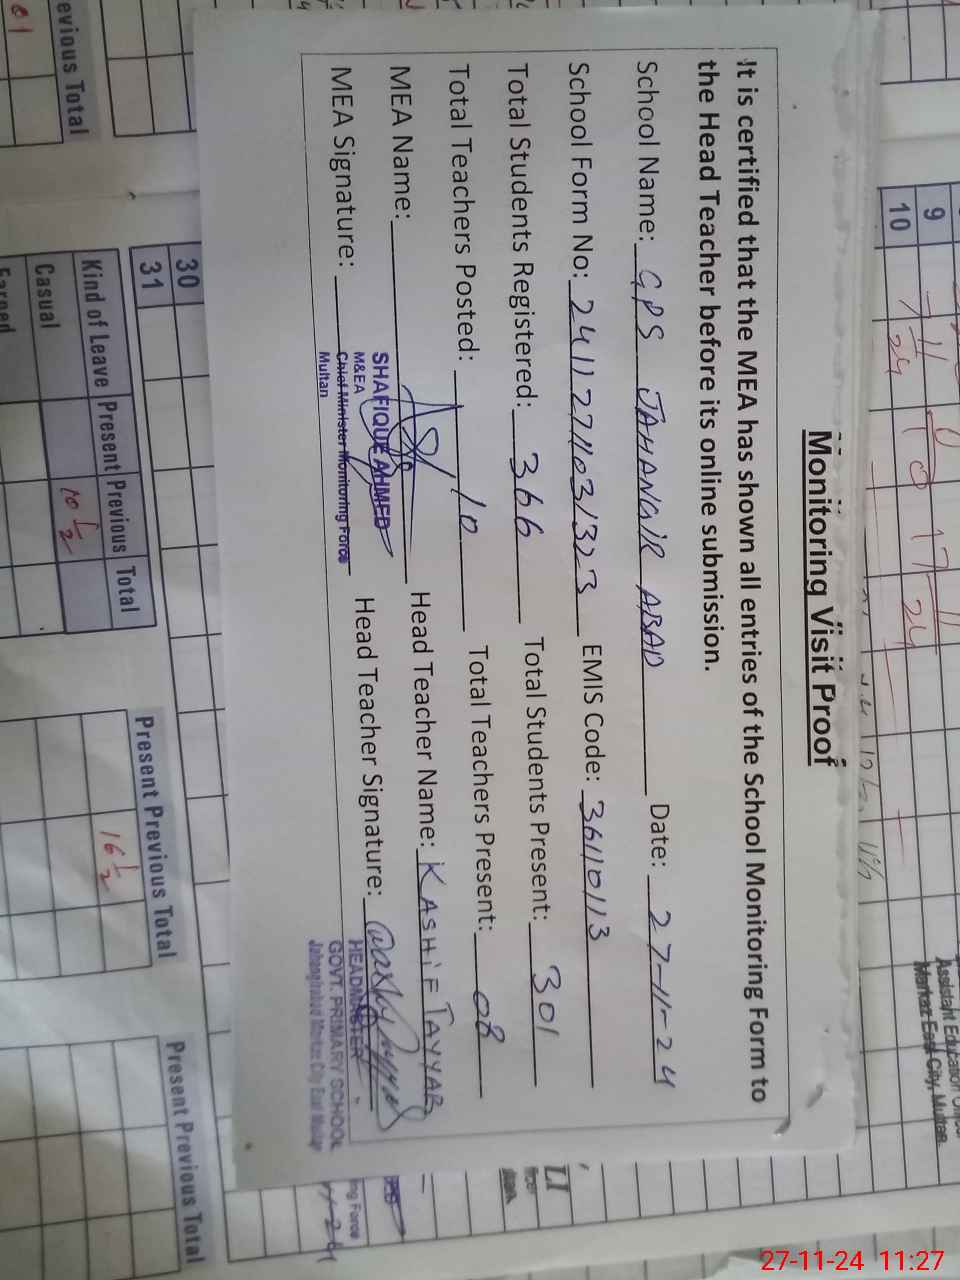 Monitoring Visit Proof
It is certified that the MEA has shown all entries of the School Monitoring Form to
the Head Teacher before its online submission.
School Name: GPS JAHANGIR ABAD Date: 27-11-24
School Form No: 24112711031323 EMIS Code: 36110113
Total Students Registered: 366 Total Students Present: 301
Total Teachers Posted: 10 Total Teachers Present: 08
MEA Name: Head Teacher Name: KASHIF TAYYAB
MEA Signature: Head Teacher Signature:
SHAFIQUE AHMED
M&EA
Chief Minister Monitoring Force
Multan
HEADMASTER
GOVT. PRIMARY SCHOOL
Jahangirabad Markaz City East Multan
evious Total
30
31
Kind of Leave Present Previous Total
10 1/2
Casual
Earned
Present Previous Total
16 1/2
Present Previous Total
9
10
Assistant Education
Markaz East City, Multan.
ing Force
27-11-24 11:27